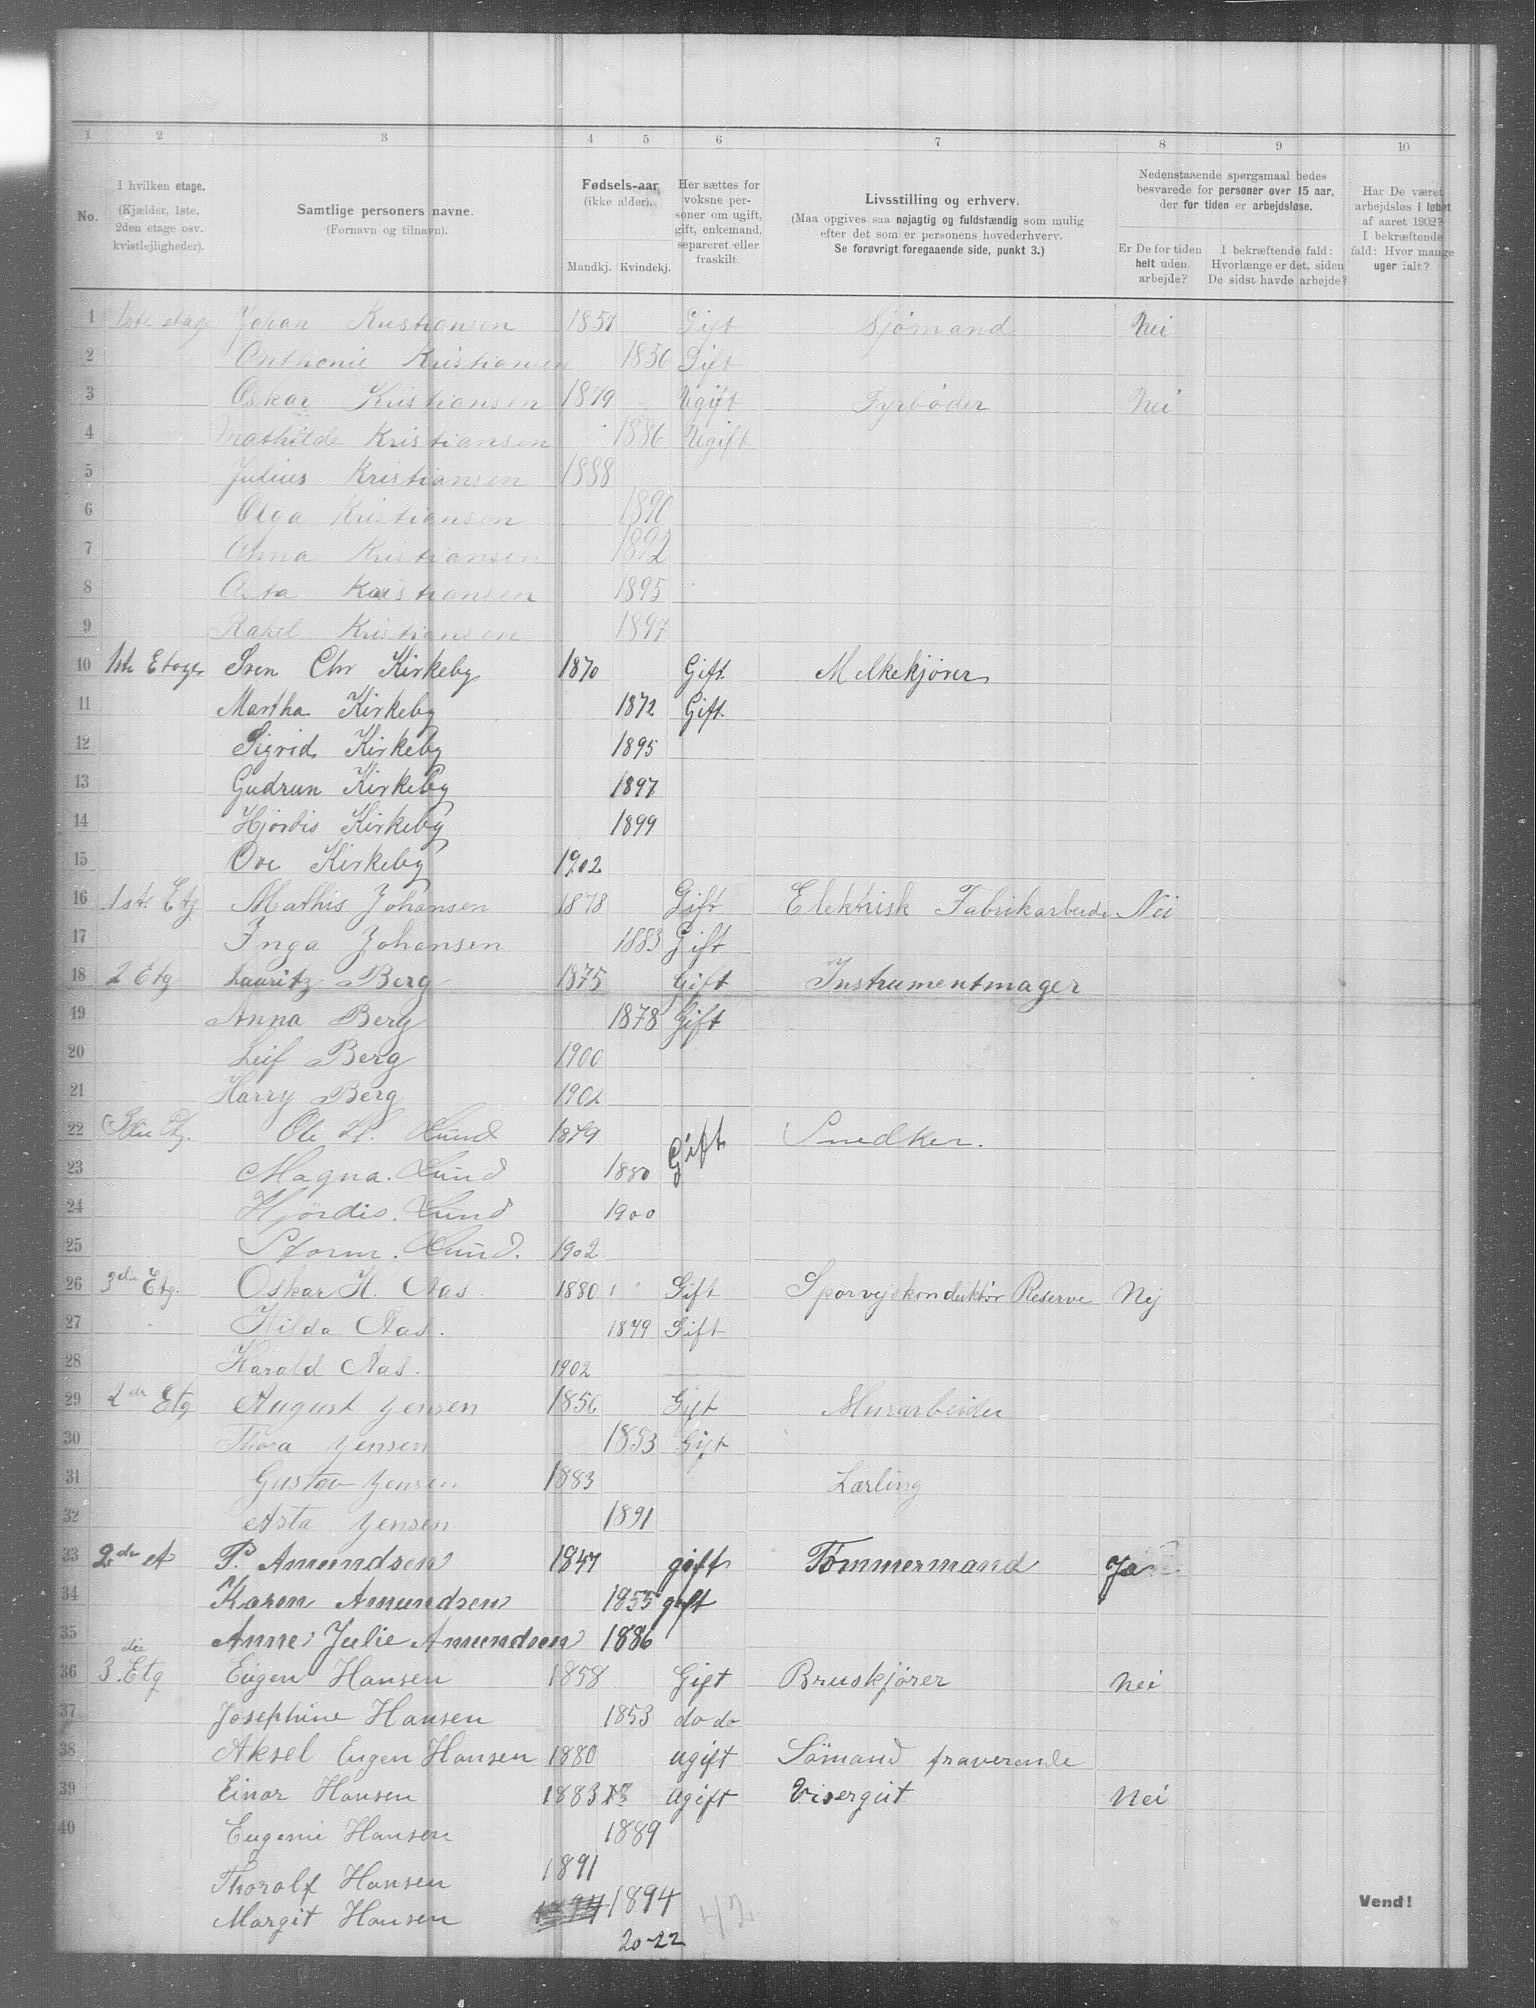 1 2 3 4 5 6 7 8 9 10
No. I hvilken etage. (Kjælder, 1ste, 2den etage osv. kvistlejligheder). Samtlige personers navne. (Fornavn og tilnavn). Fødsels-aar (ikke alder). Mandkj. Kvindekj. Her sættes for voksne personer om ugift, gift, enkemand, separeret eller fraskilt. Livsstilling og erhverv. (Maa opgives saa nøjagtig og fuldstændig som mulig efter det som er personens hovederhverv. Se forøvrigt foregaaende side, punkt 3.) Nedenstaaende spørgsmaal bedes besvarede for personer over 15 aar, der for tiden er arbejdsløse. Er De for tiden helt uden arbejde? I bekræftende fald: Hvorlænge er det, siden De sidst havde arbejde? Har De været arbejdsløs i løbet af aaret 1902? I bekræftende fald: Hvor mange uger ialt?
1 1ste etag Johan Kristiansen 1851 Gift Sjømand Nei
2 Kristiansen 1856 Gift
3 Oskar Kristiansen 1879 Ugift Fyrbøder Nei
4 Mathilde Kristiansen 1886 Ugift
5 Julius Kristiansen 1888
6 Olga Kristiansen 1890
7 Anna Kristiansen 1892
8 Asta Kristiansen 1895
9 Rakel Kristiansen 1897
10 1ste Etager Sven Chr Kirkeby 1870 Gift Melkekjører
11 Martha Kirkeby 1872 Gift.
12 Sigrid Kirkeby 1895
13 Gudrun Kirkeby 1897
14 Hjördis Kirkeby 1899
15 Ove Kirkeby 1902
16 1ste Etg Mathis Johansen 1878 Gift Elektrisk Fabrikarbeide Nei
17 Inga Johansen 1883 Gift
18 2 Etg Lauritz Berg 1875 Gift Instrumentmager
19 Anna Berg 1878 Gift
20 Leif Berg 1900
21 Harry Berg 1902
22 Etg. Ole H. Lund 1879 Gift Snedker.
23 Magna. Lund 1880
24 Hjördis. Lund 1900
25 Storm. Lund. 1902
26 3die Etg. Oskar H. Aas 1880 Gift Sporvejskonduktör Reserve Nej
27 Hilda Aas. 1879 Gift
28 Harald Aas. 1902
29 2den Etg August Jensen 1856 Gift Murarbeider
30 Thora Jensen 1853 Gift
31 Gustav Jensen 1883 Lærling
32 Asta Jensen 1891
33 2de A P. Amundsen 1847 gift Tömmermand Ja
34 Karen Amundsen 1855 gift
35 Anne Julie Amundsen 1886
36 3die Etg Eugen Hansen 1858 Gift Bruskjører Nei
37 Josephine Hansen 1853 do do
38 Aksel Eugen Hansen 1880 ugift Sömand fraverende
39 Einar Hansen 1883 ugift Visergut Nei
40 Eugenie Hansen 1889
Thoralf Hansen 1891
Margit Hansen 1894 42
20-22
Vend!